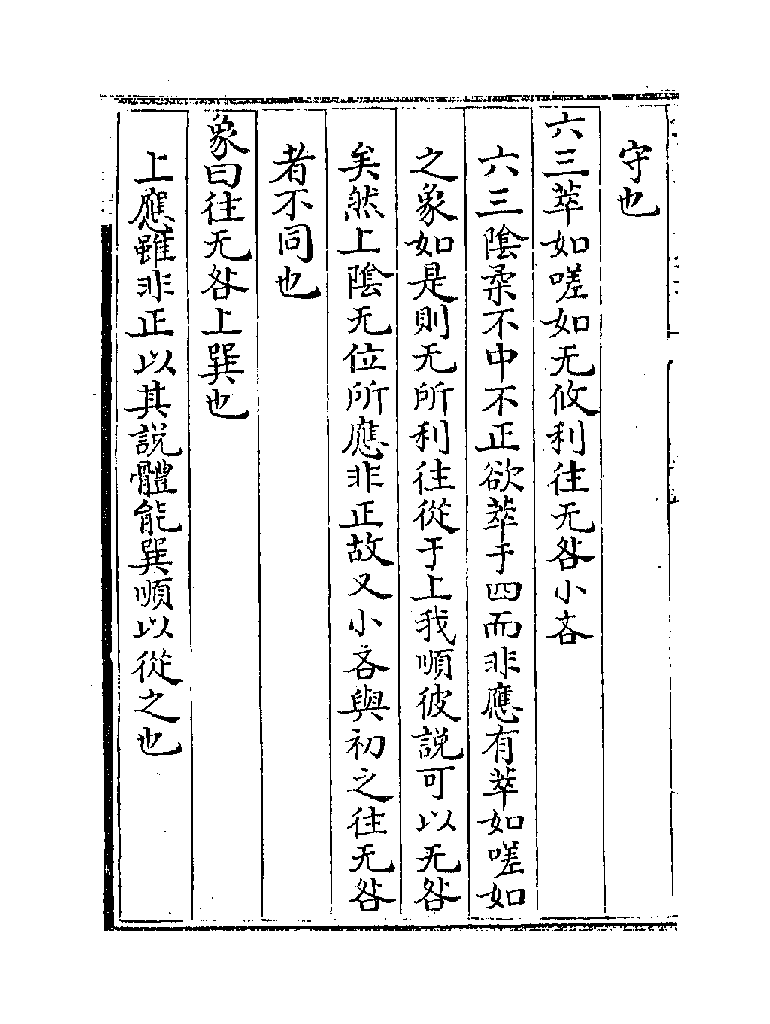 守也
六三萃如嗟如无攸利往无咎小吝
六三陰柔不中不正欲萃于四而非應有萃如嗟如
之象如是則无所利往從于上我順彼說可以无咎
矣然上陰无位所應非正故又小吝與初之往无咎
者不同也
象曰往无咎上巽也
上應雖非正以其說體能巽順以從之也